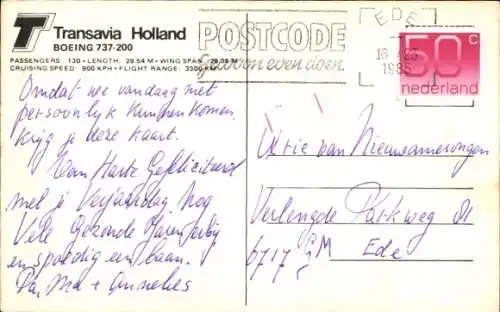 Transavia Holland
BOEING 737-200
PASSENGERS 130 - LENGTH: 29.54 M - WING SPAN: 28.35 M
CRUISING SPEED 900 KPH - FLIGHT RANGE: 3300 KM
POSTCODE
Gewoon even doen.
EDE
16
1985
50 c
nederland
Omdat we vandaag niet
persoonlijk kunnen komen
krijg je deze kaart.
Van Harte Gefeliciteerd
met je Verjaardag Nog
Vele Gezonde Jaren erbij
en spoedig een baan.
Pa, Ma + Annelies
van Nieuwamerongen
Verlengde Parkweg 21
6717 GM
Ede